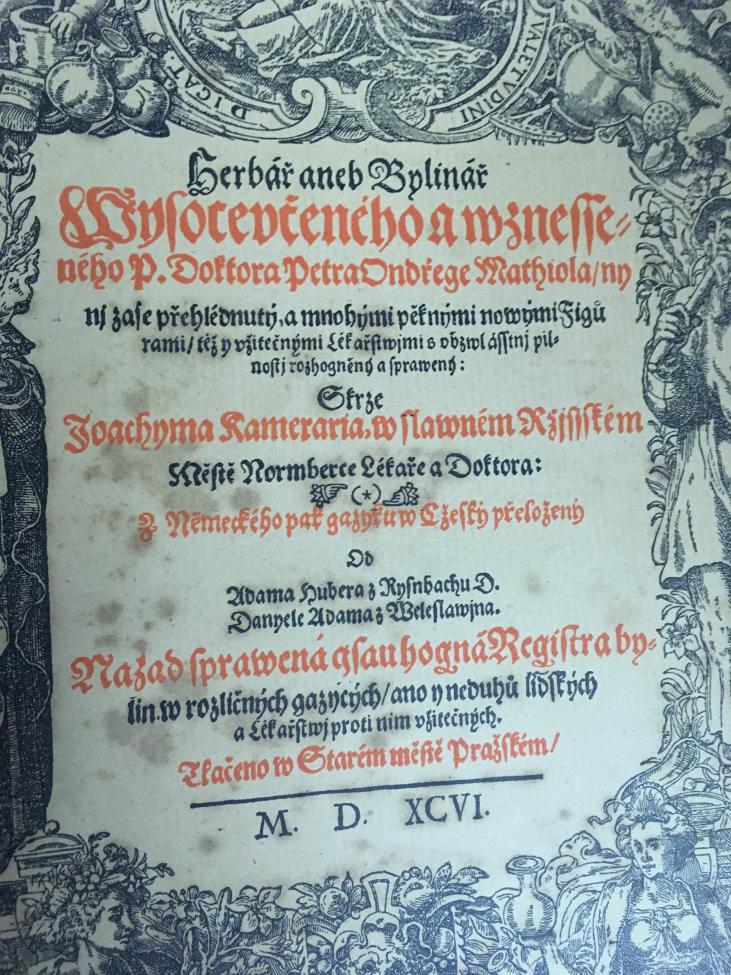 DIGAT
VALETVDINI
Herbář aneb Bylinář
Wysocevčeného a wznesse-
ného P. Doktora Petra Ondřege Mathiola/ ny
nj zase přehlédnutý, a mnohými pěknými nowými Figů
rami/ též y vžitečnými Lékařstwjmi s obzwlásstnj pil-
nostj rozhogněný a sprawený:
Skrze
Joachyma Kameraria, w slawném Ržjsském
Městě Normberce Lékaře a Doktora:
(*)
Z Německého pak gazyku w Cžesky přeložený
Od
Adama Hubera z Rysnbachu D.
Danyele Adama z Weleslawjna.
Nazad sprawená gsau hogná Registra by-
lin, w rozličných gazycých/ ano y neduhů lidských
a Lékařstwj proti nim vžitečných.
Tlačeno w Starém městě Pražském/
M. D. XCVI.